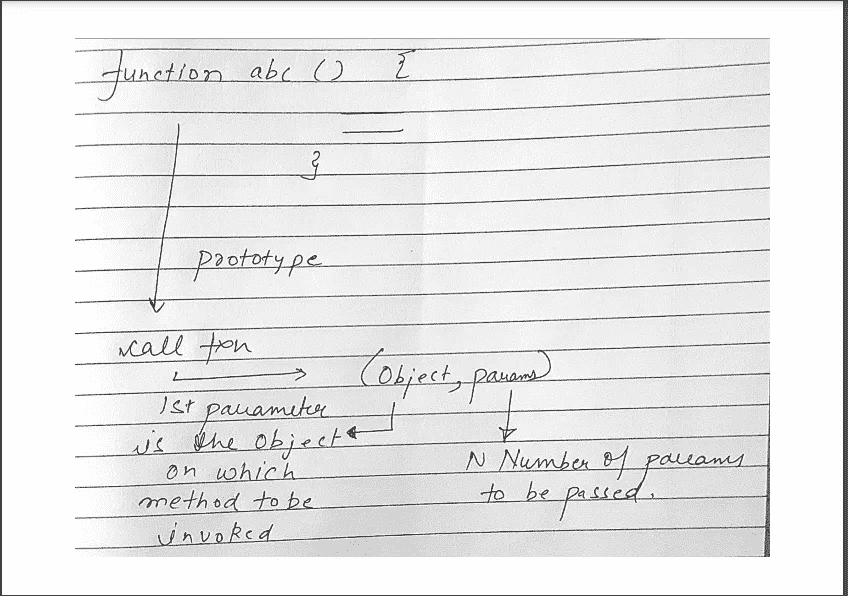 function abc () {
}
prototype
call fxn
(Object, params)
1st parameter
is the object
on which
method to be
invoked
N Number of params
to be passed.